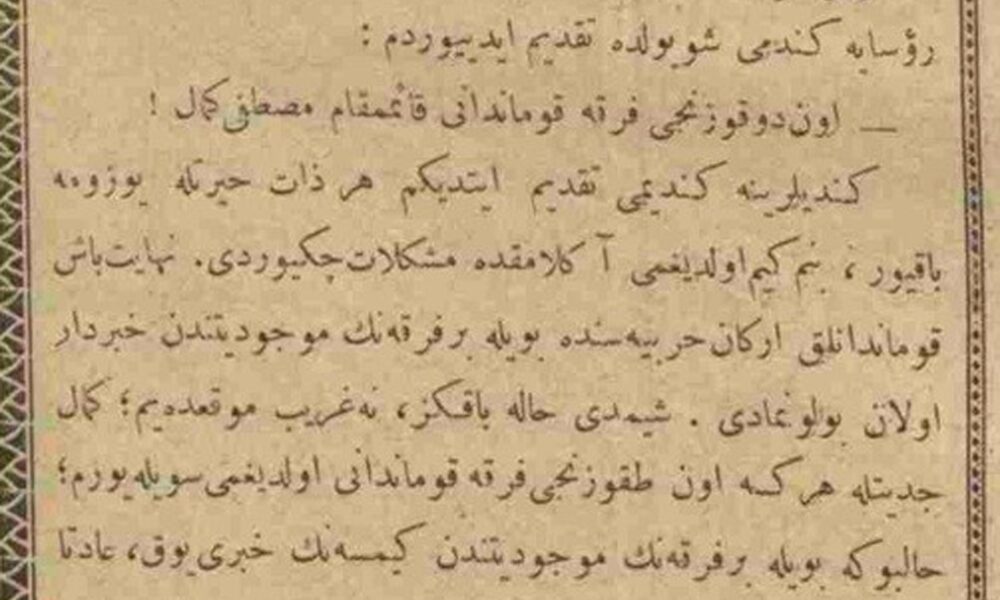 رؤسایه كندمی شویولده تقدیم ایدییوردم :
— اون‌دوقوزنجی فرقه قوماندانی قائممقام مصطفی كمال !
كندیلرینه كندیمی تقدیم ایتدیكم هر ذات حیرتله یوزومه
باقیور ، بنم كیم‌اولدیغمی آ كلامقده مشكلات‌چكیوردی. نهایت‌باش
قوماندانلق اركان‌حربیه‌سنده بویله برفرقه‌نك موجودیتندن خبردار
اولان بولونمادی . شیمدی حاله باقكز، نه‌غریب موقعده‌یم؛ كمال
جدیتله هركسه اون طقوزنجی‌فرقه قوماندانی اولدیغمی‌سویله‌یورم؛
حالبوكه بویله برفرقه‌نك موجودیتندن كیمسه‌نك خبری‌یوق، عادتا